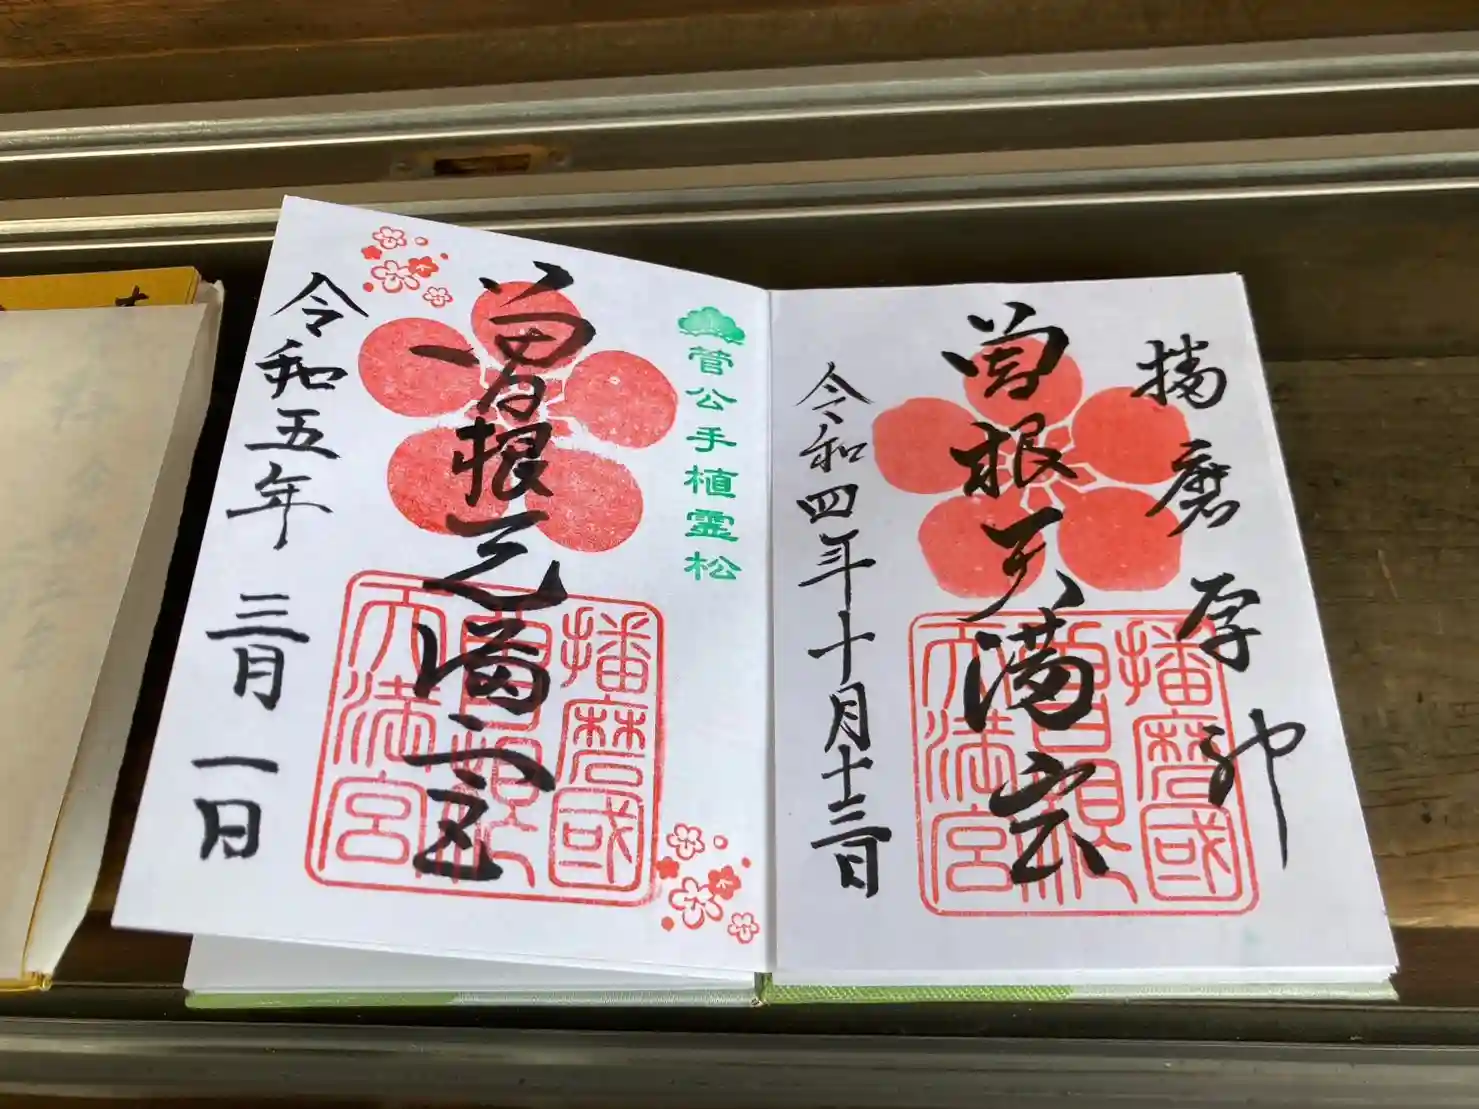 播磨厚神
曽根天満宮
播磨國
曽根
天満宮
令和四年十月十三日
菅公手植霊松
曽根天満宮
播磨國
曽根
天満宮
令和五年三月一日